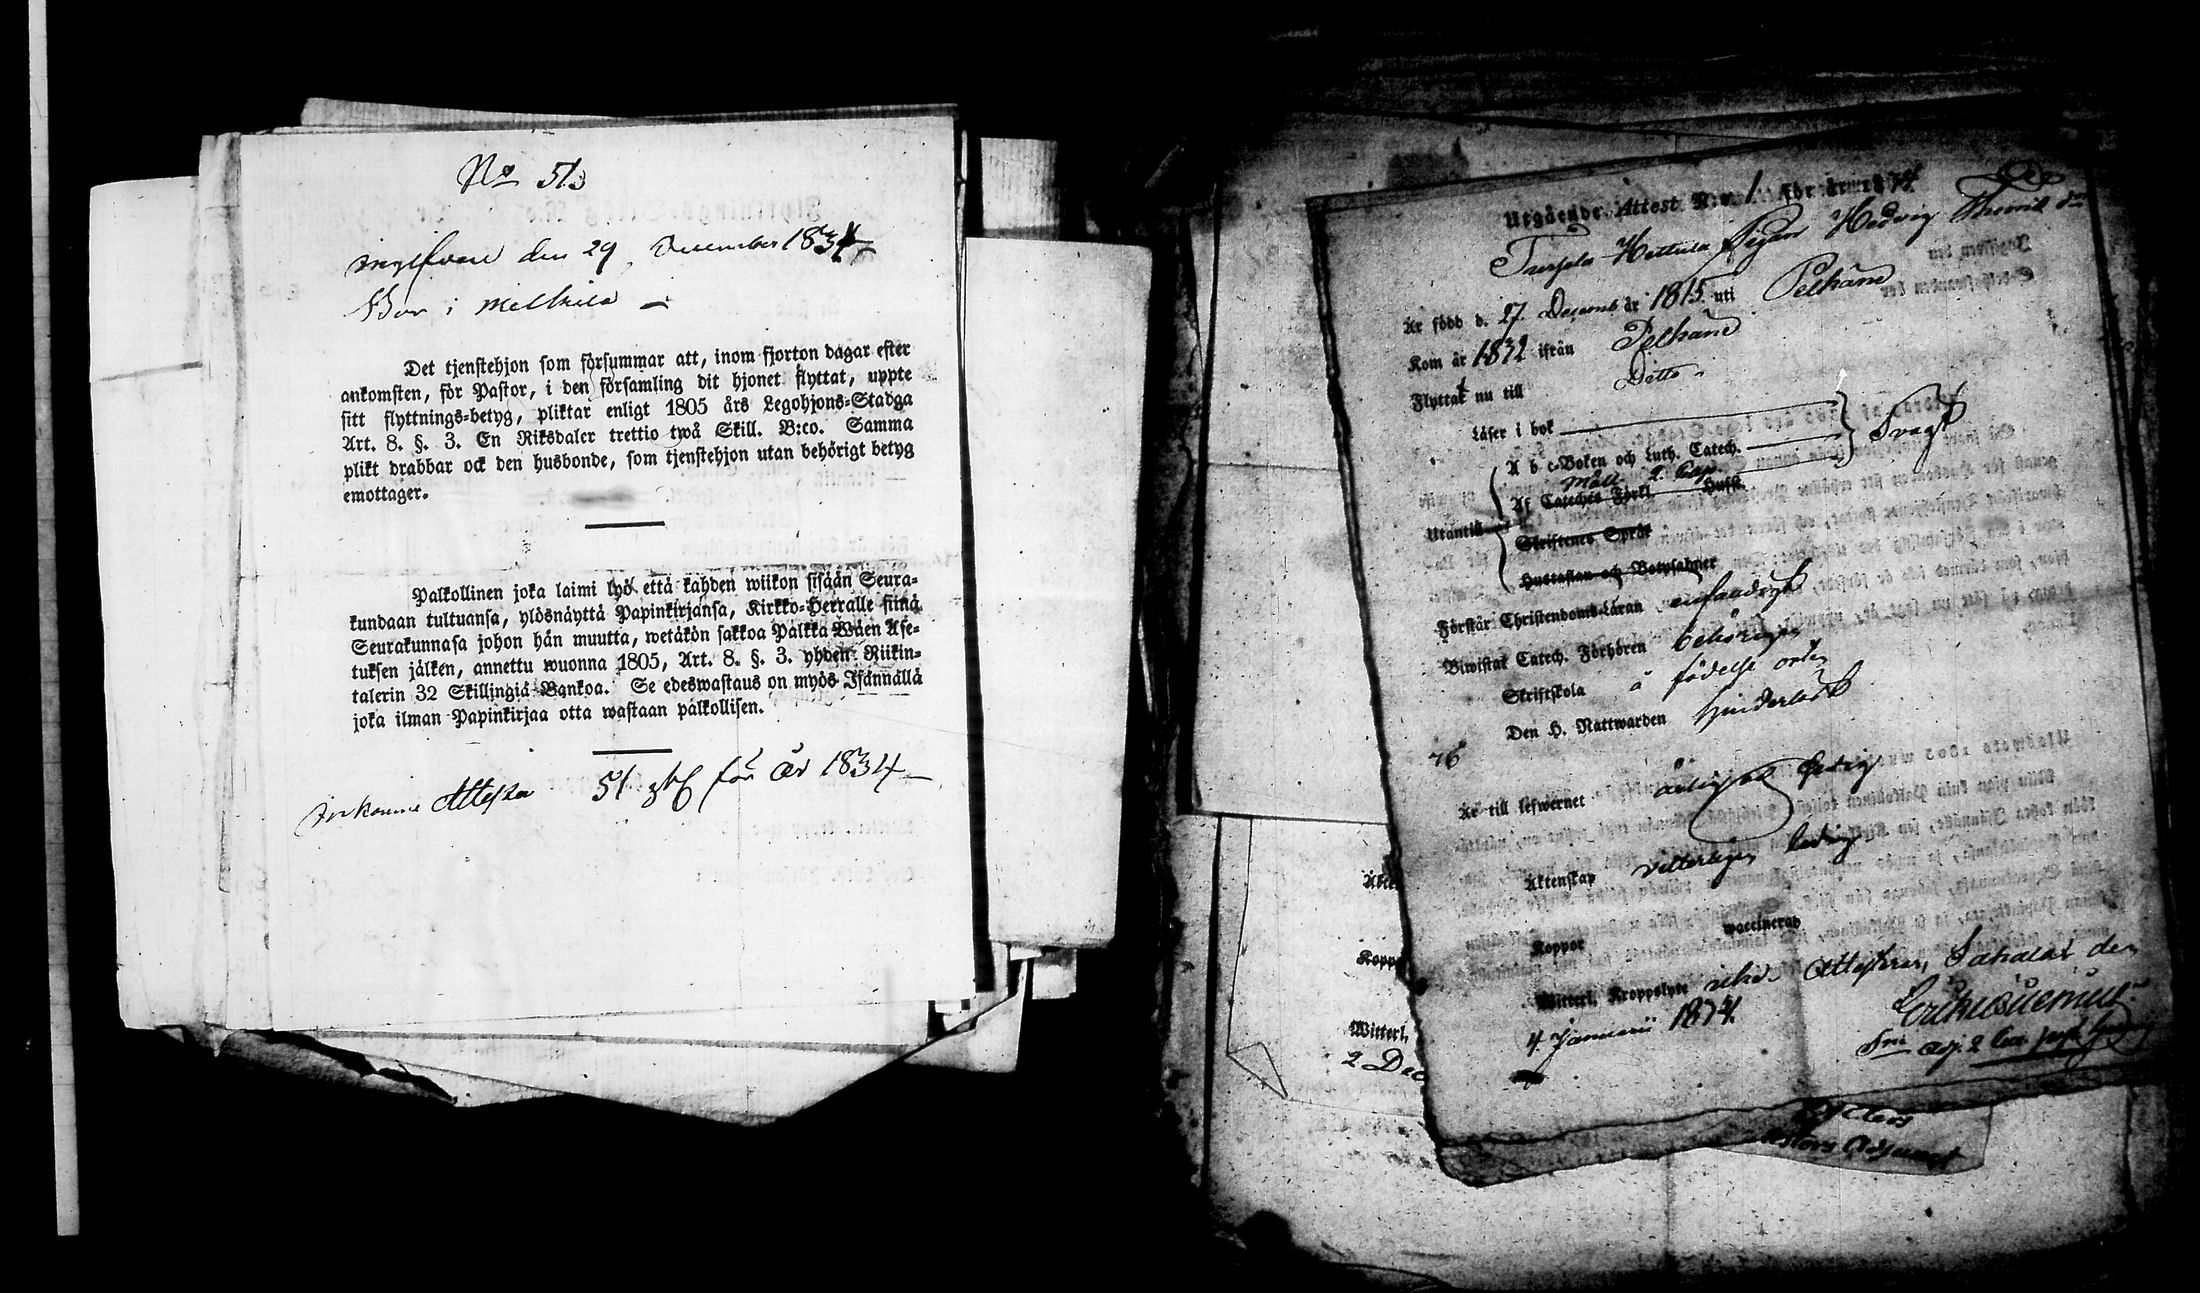 No 51
Ingifven den 29 December 1834
Bor i Melkila
Det tjenstehjon som försummar att, inom fjorton dagar efter
ankomsten, för Pastor, i den församling dit hjonet flyttat, uppte
sitt flyttnings-betyg, pliktar enligt 1805 års Legohjons-Stadga
Art. 8. §. 3. En Riksdaler trettio twå Skill. B:co. Samma
plikt drabbar ock den husbonde, som tjenstehjon utan behörigt betyg
emottager.
Palkollinen joka laimi lyö että kahden wiikon sisään Seura-
kundaan tultuansa, ylösnäyttä Papinkirjansa, Kirkko-Herralle siinä
Seurakunnasa johon hän muutta, wetäkön sakkoa Palkka Wäen Ase-
tuksen jälken, annettu wuonna 1805, Art. 8. §. 3. yhden Riikin-
talerin 32 Skillingiä Bankoa. Se edeswastaus on myös Isännällä
joka ilman Papinkirjaa otta wastaan palkollisen.
Inkomne Attester 51 st för år 1834
Utgående Attest N:o 1 för året 1834
Hedvig
Är född d. 27 Decemb år 1815 uti Pelkäne
Kom år 1832 ifrån Pelkäne
Flyttat nu till Ditto
Läser i bok
A b c-Boken och Luth. Catech. Svagt
Mall. 2. Cap.
Utantill Af Cateches Förkl. Hufst.
Skriftenes Språk
Hustaflan och Botpsalmer
Förstår Christendoms-Läran enfaldigt
Biwistat Catech. Förhören behörigen
Skriftskola å födelse orten
Den H. Nattwarden hinderlöst
Är till lefwernet
Äktenskap veterligen ledig
Koppor waccinerad
Witterl. Kroppslyte Attesterar, Sahalax den
4 Januarii 1834
Äkte
Kopp
Witterl.
2 Dec
Adjunct